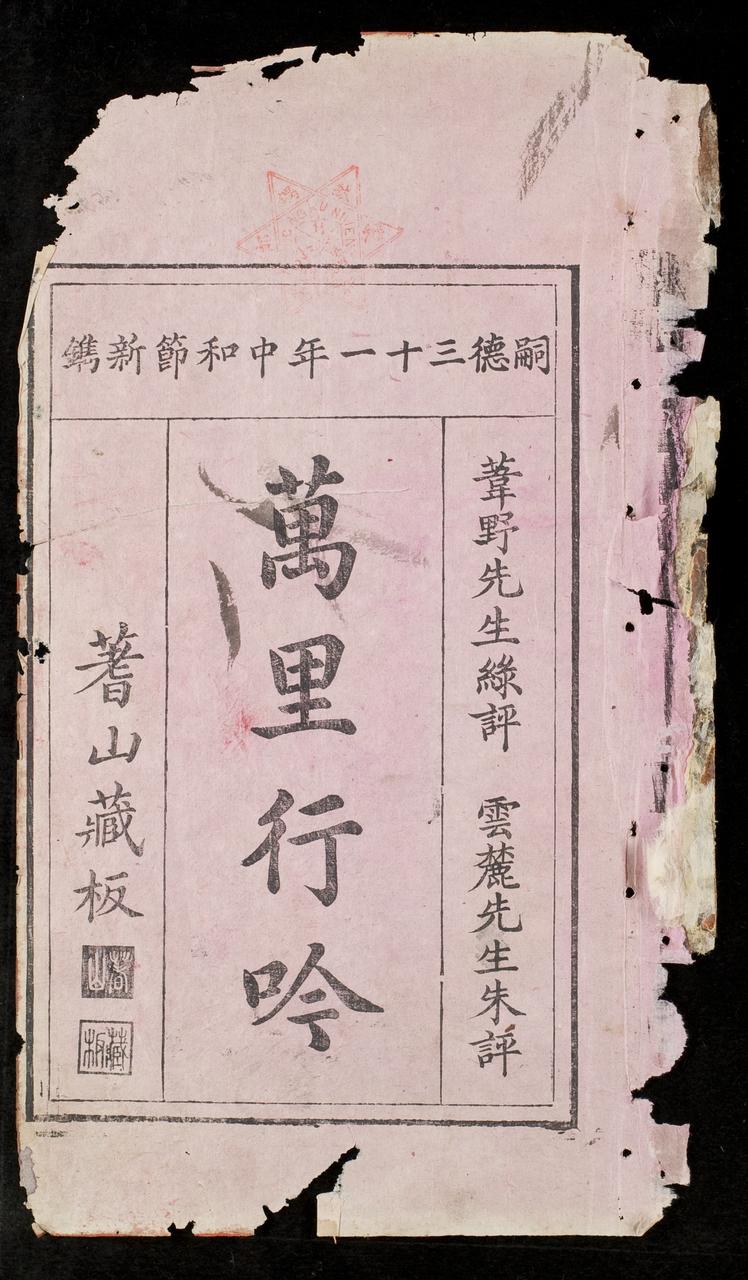 嗣德三十一年中和節新鐫
葦野先生綠評　雲麓先生朱評
萬里行吟
蓍山藏板
蓍山
藏板